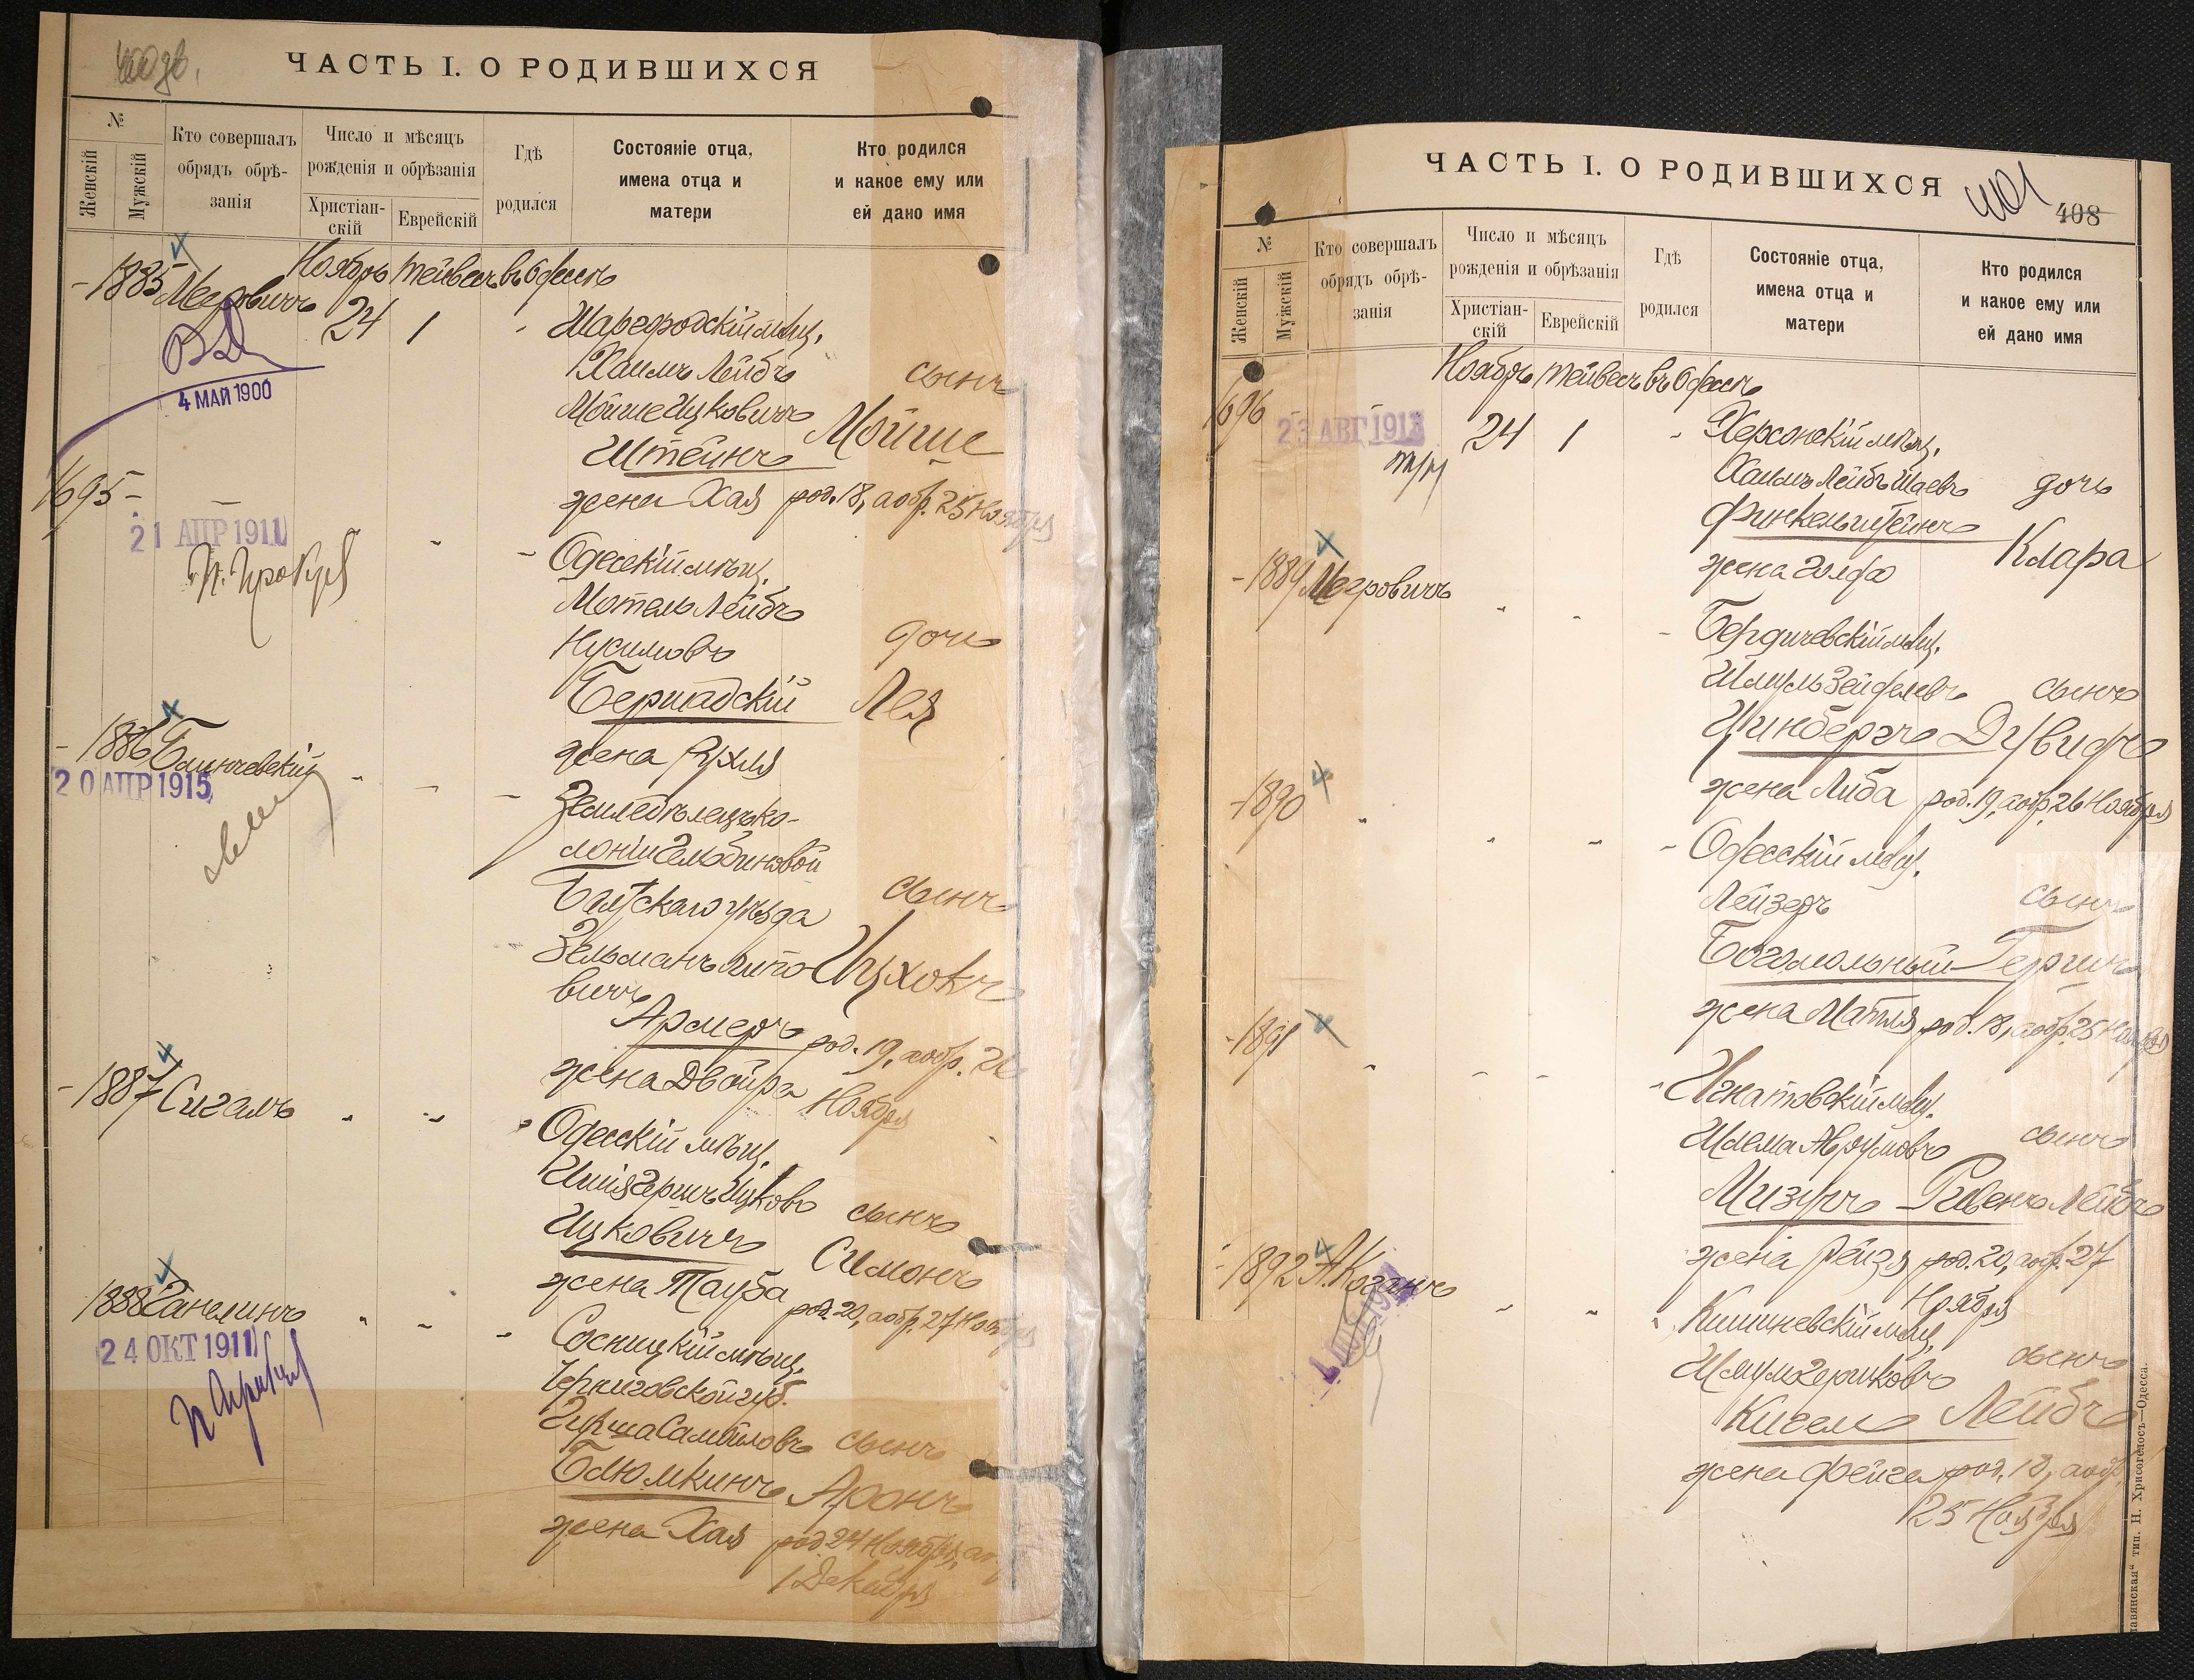 ЧАСТЬ I. О РОДИВШИХСЯ
№
Женскій
Мужскій
Кто совершалъ
обрядъ обрѣ-
занія
Число и мѣсяцъ
рожденія и обрѣзанія
Христіан-
скій
Еврейскій
Гдѣ
родился
Состояніе отца,
имена отца и
матери
Кто родился
и какое ему или
ей дано имя
Ноябрь Тейвесъ въ Одессѣ
- 1885 Мееровичъ 24 1
4 МАЙ 1900
Шаргородскій мѣщ.
Хаимъ Лейбъ
сынъ
Мойше Ицковичъ
Мойше
Штейнъ
жена Хая род. 18, а обр. 25 Ноября
1695 -
21 АПР 1911
Одесскій мѣщ.
Мотель Лейбъ
Нусимовъ
дочь
Бершадскій
Лея
жена Рухля
- 1886
20 АПР 1915
Земледѣлецъ ко-
лоніи
Балтскаго уѣзда
сынъ
Зельманъ
Ицхокъ
вичъ
Армеръ род. 19, а обр. 26
жена Двойра Ноября
- 1887 Сигалъ
Одесскій мѣщ.
Гершъ Ицковъ
сынъ
Ицковичъ
Симонъ
жена Тауба род. 20, а обр. 27 Ноября
1888 Ганелинъ
24 ОКТ 1911
Сосницкій мѣщ.
Черниговской губ.
Гирша Самойловъ сынъ
Блюмкинъ Аронъ
жена Хая род 24 Ноября, а
1 Декабря
ЧАСТЬ I. О РОДИВШИХСЯ
401
408
№
Женскій
Мужскій
Кто совершалъ
обрядъ обрѣ-
занія
Число и мѣсяцъ
рожденія и обрѣзанія
Христіан-
скій
Еврейскій
Гдѣ
родился
Состояніе отца,
имена отца и
матери
Кто родился
и какое ему или
ей дано имя
Ноябрь Тейвесъ въ Одессѣ
1696 - - 24 1
23 АВГ 1913
Херсонскій мѣщ.
Хаимъ Лейбъ Шаевъ дочь
Финкельштейнъ
Клара
жена Голда
- 1889 Мееровичъ
Бердичевскій мѣщ.
Шмуль Зейделевъ сынъ
Цинбергъ Дувидъ
жена Либа род. 19, а обр. 26 Ноября
- 1890
Одесскій мѣщ.
Лейзеръ сынъ
Богомольный Гершъ
жена Матля род. 18, а обр. 25 Ноября
- 1891
Игнатовскій мѣщ.
Шлема Аврумовъ сынъ
Мизусъ Рувенъ Лейбъ
жена Рейзя род. 20, а обр. 27
Ноября
- 1892 А. Коганъ
Кишиневскій мѣщ.
Шмуль Гершковъ сынъ
Кигель Лейбъ
жена Фейга род. 18, а обр.
25 Ноября
тип. Н. Хрисогелосъ—Одесса.